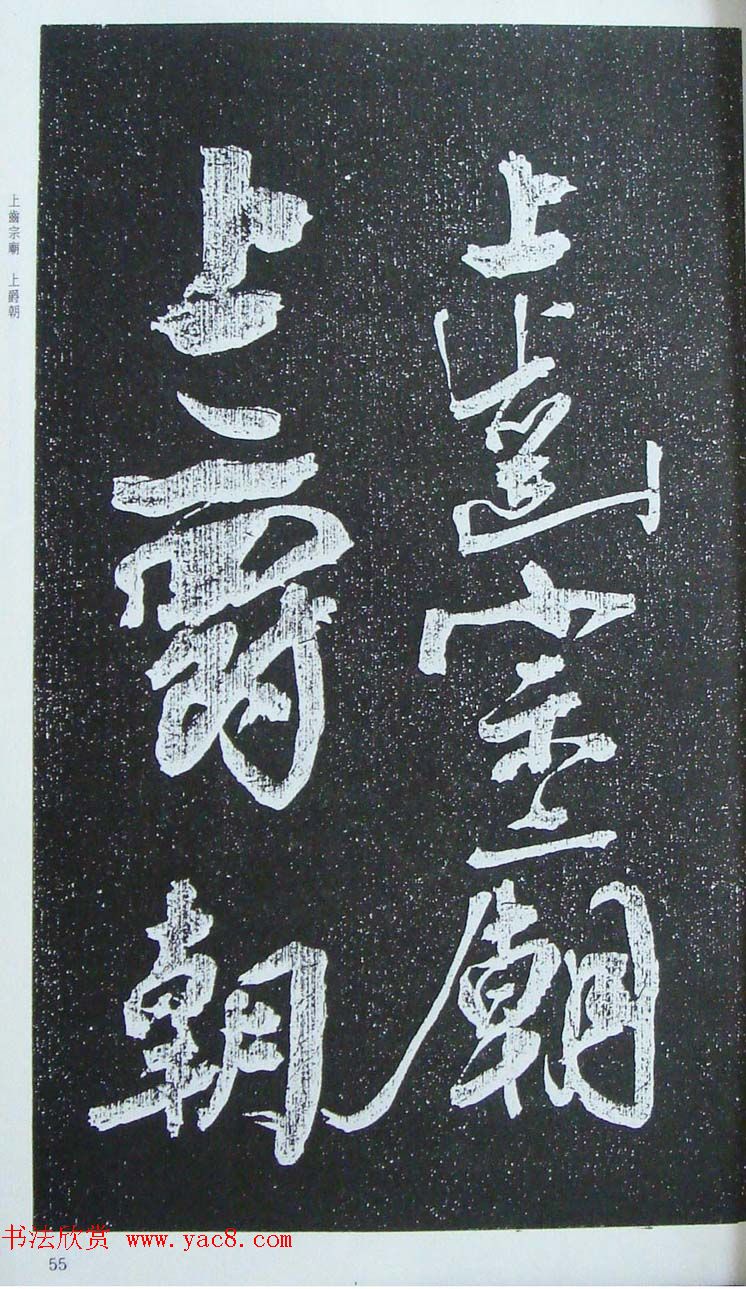 上齒宗廟
上爵朝
上齒宗廟 上爵朝
书法欣赏 www.yac8.com
55